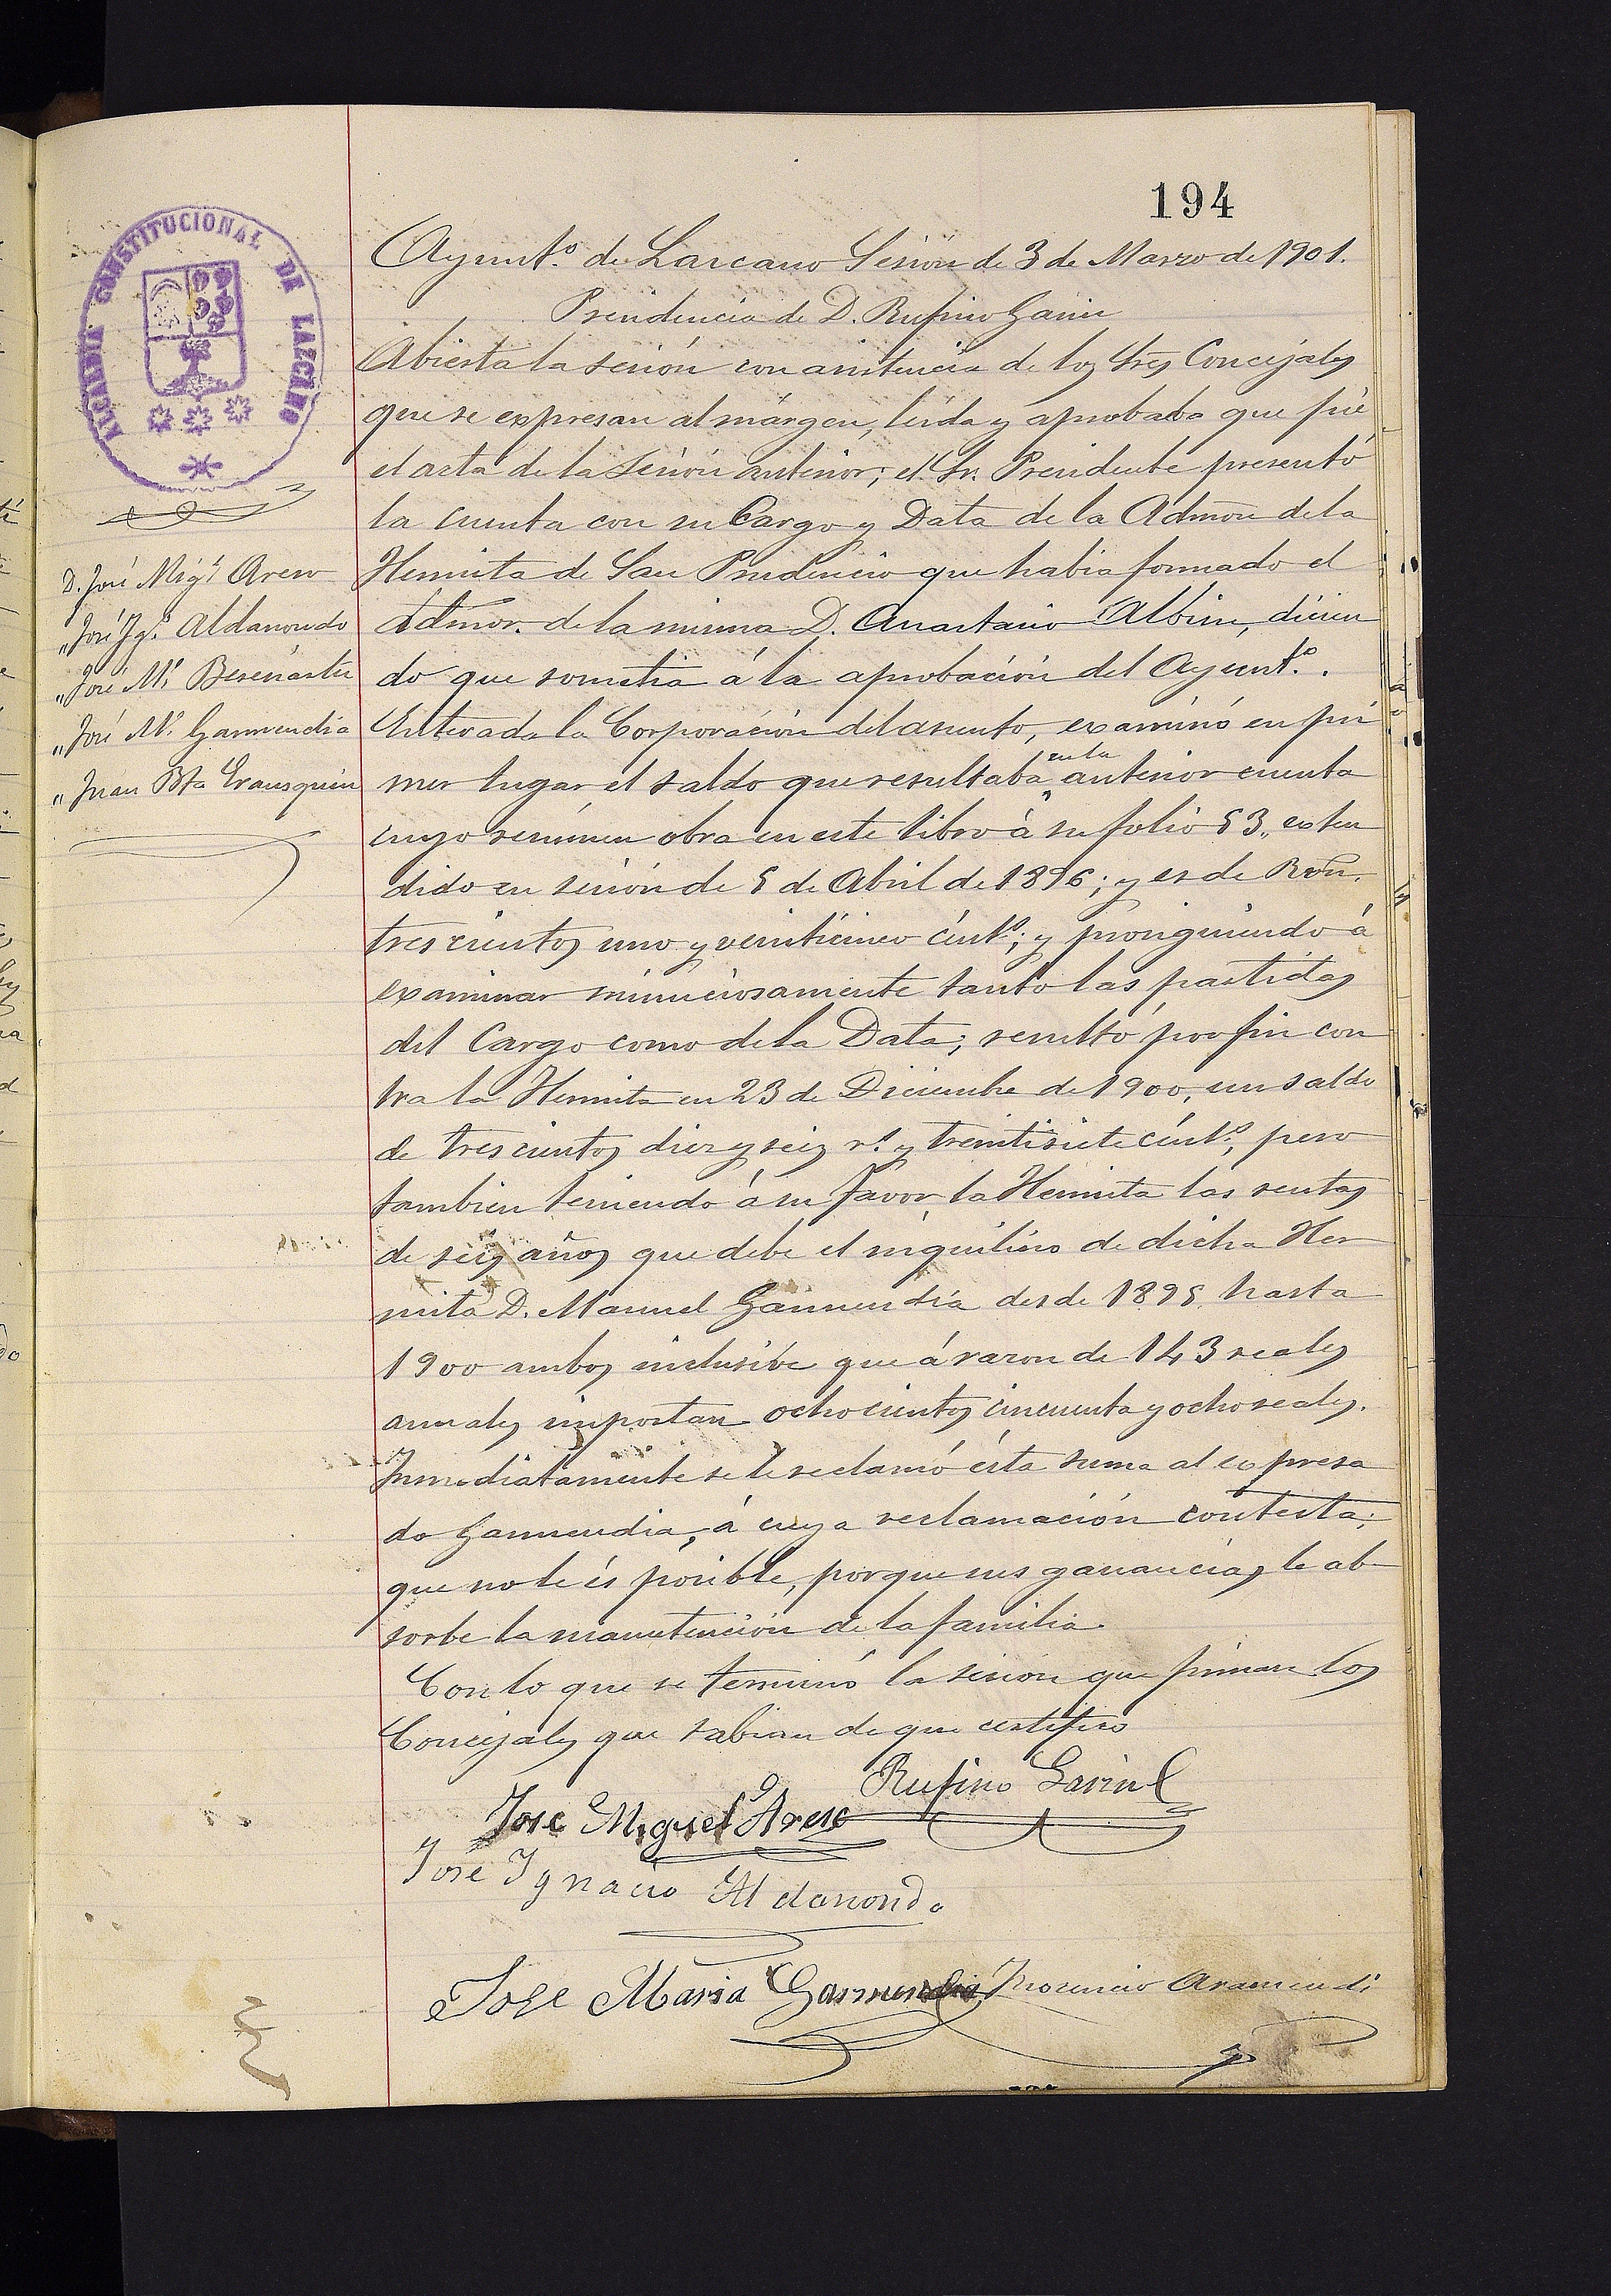 194
ALCALDIA CONSTITUCIONAL DE LAZCANO
Ayunt.º de Lazcano Sesión de 3 de Marzo de 1901.
Presidencia de D. Rufino Garin
Abierta la sesión con asistencia de los Sres Concejales
que se expresan al márgen, leida y aprobada que fué
el acta de la sesión anterior; el Sr. Presidente presentó
la cuenta con su Cargo y Data de la Admon de la
Hermita de San Prudencio que habia formado el
Admor. de la misma D. Anastasio Albisu, dicien
do que sometia á la aprobación del Ayunt.º.
Enterada la Corporación del asunto, examinó en pri
mer lugar el saldo que resultaba en la anterior cuenta
cuyo resúmen obra en este libro á su folio 53,, exten
dido en sesión de 5 de Abril de 1896; y es de Rvón.
trescientos uno y veinticinco cént.s; y prosiguiendo á
examinar minuciosamente tanto las partidas
del Cargo como de la Data; resultó por fin con
tra la Hermita en 23 de Diciembre de 1900, un saldo
de trescientos diez y seis r.s y treintisiete cént.s, pero
tambien teniendo á su favor la Hermita las rentas
de seis años que debe el inquilino de dicha Her
mita D. Manuel Garmendia desde 1895 hasta
1900 ambos inclusive que á razon de 143 reales
anuales importan ochocientos cincuenta y ocho reales.
Inmediatamente se le reclamó ésta suma al expresa
do Garmendia, á cuya reclamación contesta;
que no le és posible, porque sus ganancias le ab
sorbe la manutención de la familia.
Con lo que se terminó la sesión que firman los
Concejales que sabian de que certifico
D. José Mig.l Areso
,, José Ig.º Aldanondo
,, José M.ª Beresiartu
,, José M.ª Garmendia
,, Juan Bta Erausquin
Rufino Garin
Jose Miguel Areso
José Ignacio Aldanondo
Jose Maria Garmendia
Aramendi